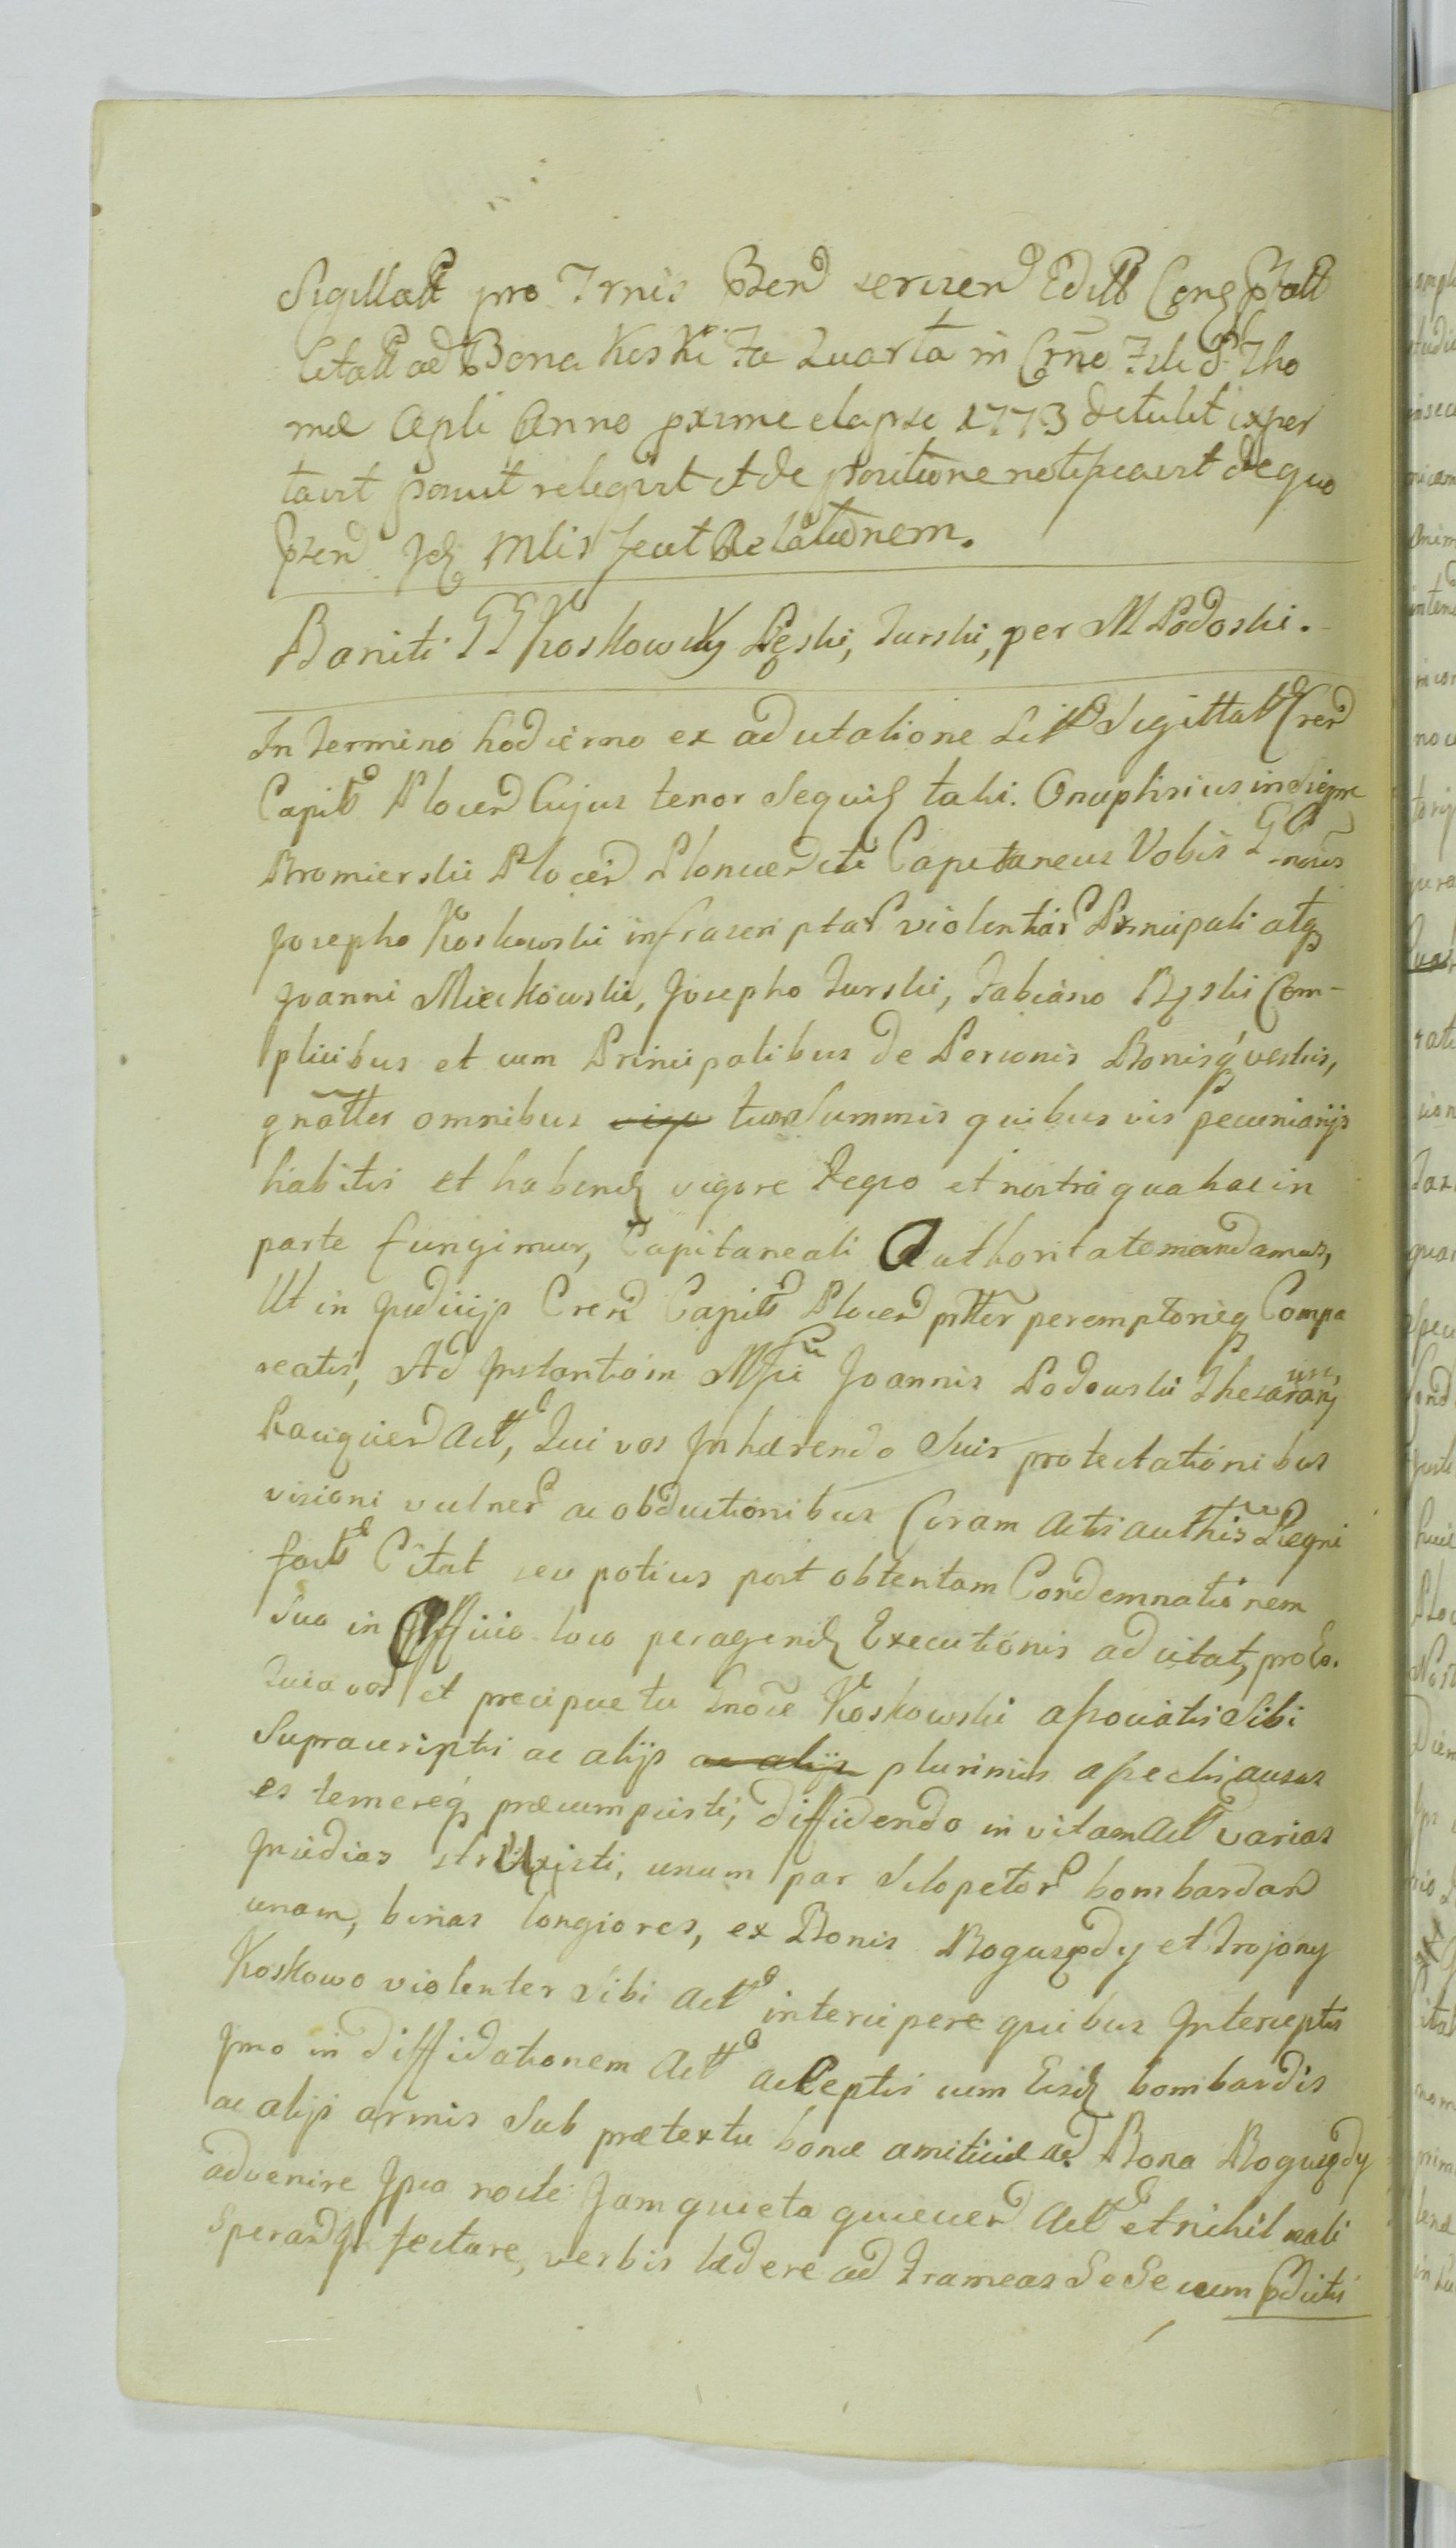 Sigillatt pro Trnis Pzen servien Editt Conspatt
Citatt ad Bona Koski Fa Quarta in Crno Festi S. Tho
mæ Apli Anno pxime elapso 1773 detulit expor
tavit posuit relegavit et de positione notificavit de quo
pzen Jdz Mlis fecit Relationem.
Baniti GG Koskowsky Ręski, Turski, per M Podoski.
In Termino hodierno ex ad citatione Litt Sigittatt Cren
Capit Plocen Cujus tenor Sequiz talis. Onuphrius in Siepne
Bromierski Plocen Plonscen ctr Capitaneus Vobis Gnosis
Josepho Koskowski infrascriptar violentiar Principali atq
Joanni Mieckowski, Josepho Turski, Fabiano Ręski Com-
plicibus et cum Principalibus de Personis Bonisq vestris,
gnatter omnibus Summis quibus vis pecuniarijs
habitis et habendz vigore Regia et nostra qua hac in
parte fungimur, Capitaneali Authoritate mandamus,
Ut in Judicijs Cren Capit Plocen pntter peremptorieq Compa
reatis, Ad Instantiam Mfci Joannis Podowski Thesaurarij
Racigzien Actt, Qui vos Inhærendo Suis protestationibus
visioni vulner ac obductionibus Coram Actis authis Regni
fact Citat seu potius post obtentam Condemnationem
Suo in Officio loco peragendz Executionis ad citat, pro Eo.
Quia vos et precipue tu Gnose Koskowski associatis Sibi
Suprascriptis ac alijs ac alijs plurimis assectis ausus
es temereq præsumpsisti, diffidendo in vitam Actt varias
Insidias struxisti, unum par Sclopetor bombardan
unam, binas longiores, ex Bonis Boguszody et Trojany
Koskowo violenter Sibi Actt intercipere quibus Interceptis
Imo in diffidationem Actt acceptis cum Eisdz bombardis
ac alijs armis Sub prætextu bonæ amicitiæ ad Bona Boguszody
advenire Ipsa nocte Jam quieta quiescen Actt et nihil mali
Speran verbis lædere ad Frameas Se Se cum pdictis